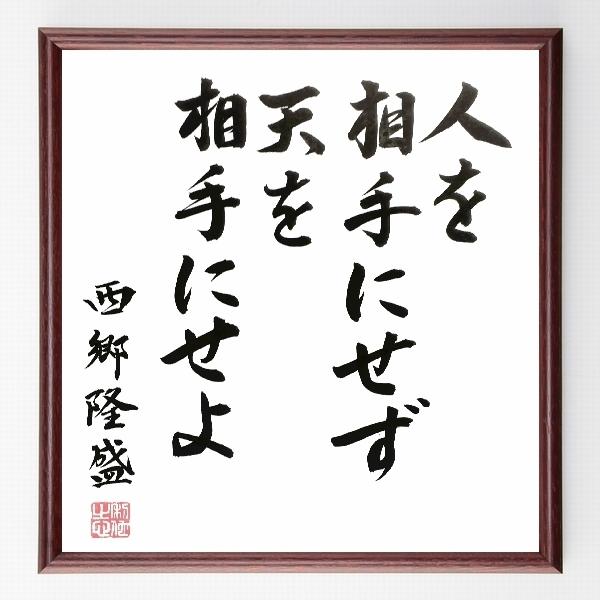 人を
相手にせず
天を
相手にせよ
西郷隆盛